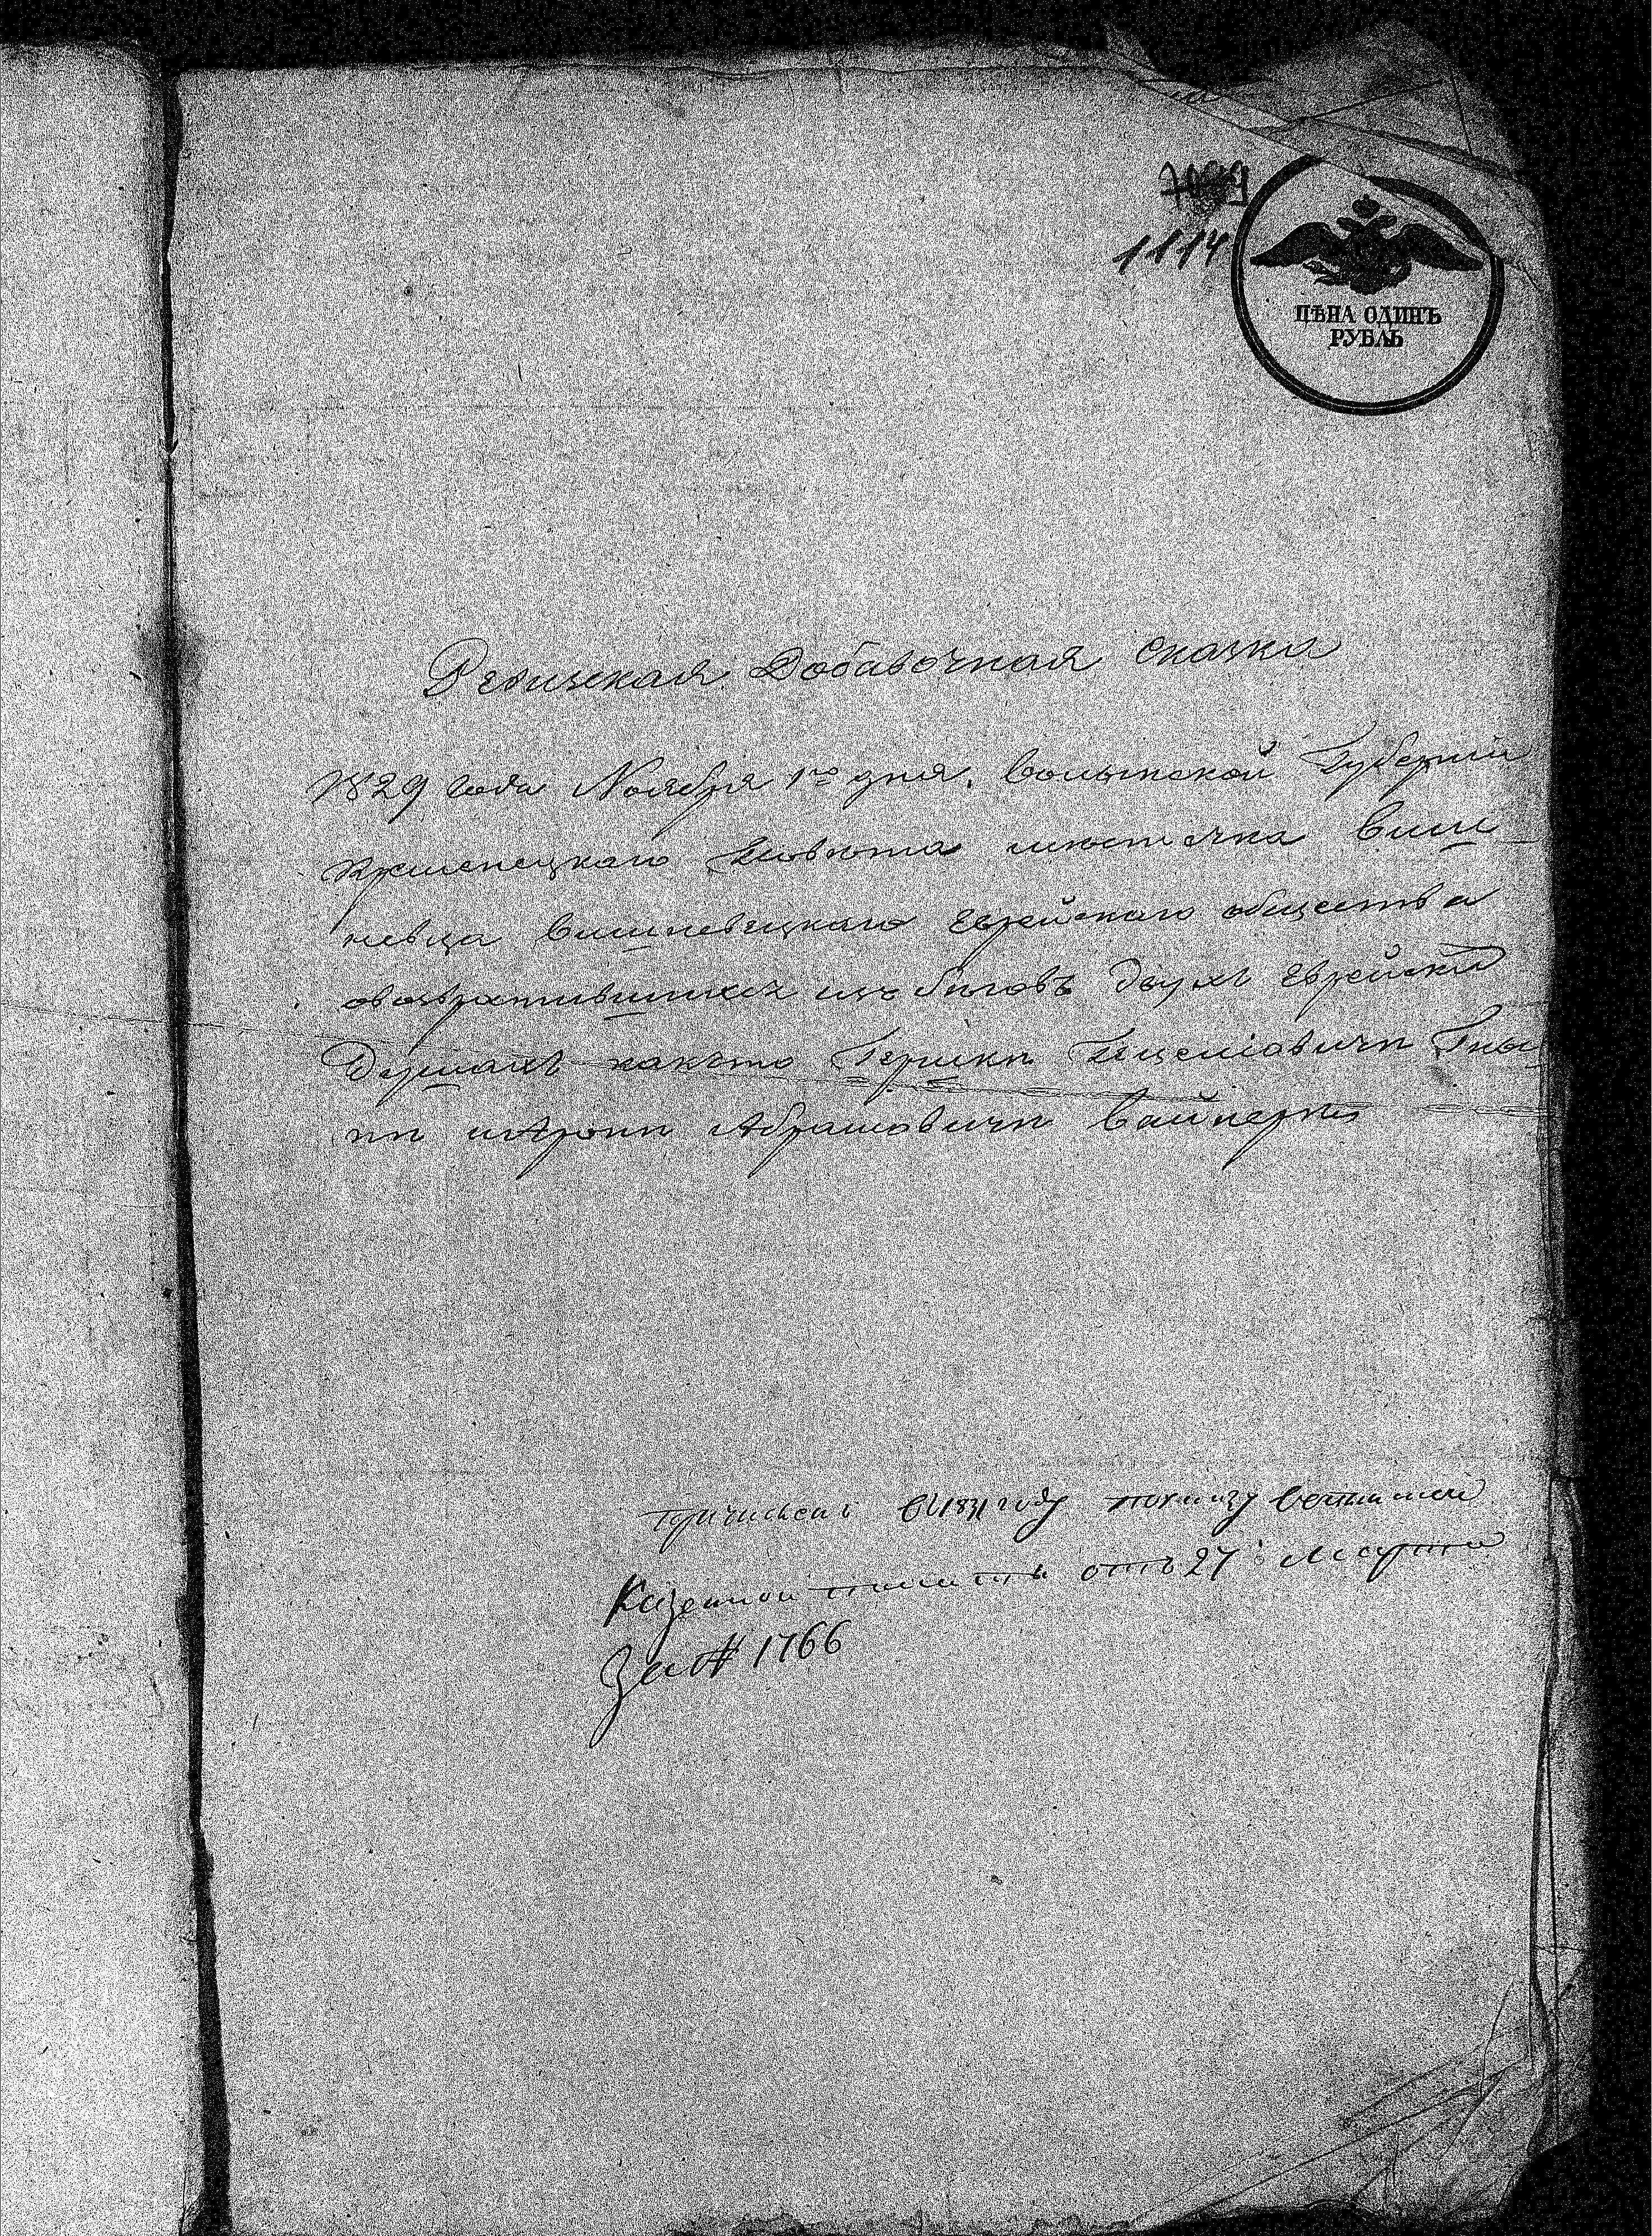 1114
ЦѢНА ОДИНЪ
РУБЛЬ
Ревизская Добавочная сказка
1829 года Ноября 1го дня. Волынской Губернии
Кременецкаго Повѣта мѣстечка Виш
невца Вишневецкаго Еврейскаго общества
овозвратившихся изъ бѣговъ двухъ Еврейски
Душахъ какъто Гершкѣ
и Аронѣ Абрамовичѣ Вайнерѣ
Причислены въ 1831 году по указу Волынской
Казенной палаты отъ 27 Марта
За № 1766